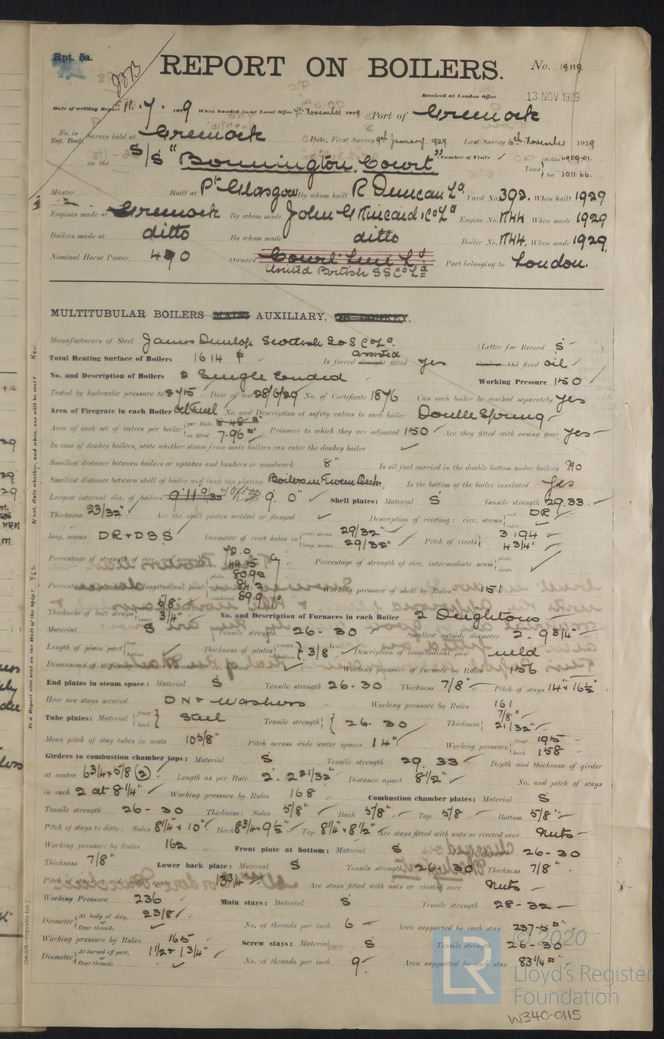 Rpt. 5a.
REPORT ON BOILERS.
No. 19119
Received at London Office 13 NOV 1929
Date of writing Report 11. 7. 1929 When handed in at Local Office 4th November 1929 Port of Greenock
No. in Reg. Book. Survey held at Greenock Date, First Survey 9th January, 1929 Last Survey November 1929
on the S/S "Bonnington Court" Number of Visits Tons
Master Built at Pt Glasgow By whom built R Duncan Ld. Yard No. 392. When built 1929
Engines made at Greenock By whom made John G Kincaid & Co Ld Engine No. K44 When made 1929
Boilers made at ditto By whom made ditto Boiler No. K44. When made 1929.
Nominal Horse Power 490 Owners Court Line Ld Port belonging to London.
United British S S Co Ld
MULTITUBULAR BOILERS MAIN, AUXILIARY, OR DONKEY.
Manufacturers of Steel James Dunlop Scottish (Letter for Record S)
Total Heating Surface of Boilers 1614 Is forced draught fitted yes Oil fired oil
assisted
No. and Description of Boilers 2 Single Ended Working Pressure 150
Tested by hydraulic pressure to 275 Date of test 28/6/29 No. of Certificate 1876 Can each boiler be worked separately yes
Area of Firegrate in each Boiler oil fuel No. and Description of safety valves to each boiler Double Spring
Area of each set of valves per boiler per Rule 8.48 as fitted 7.96 Pressure to which they are adjusted 150 Are they fitted with easing gear yes
In case of donkey boilers, state whether steam from main boilers can enter the donkey boiler
Smallest distance between boilers or uptakes and bunkers or woodwork 8" Is oil fuel carried in the double bottom under boilers No
Smallest distance between shell of boiler and tank top plating Boilers in Tween Decks. Is the bottom of the boiler insulated yes
Largest internal dia. of boilers 9' 0" Shell plates: Material S Tensile strength 29.33
Thickness 23/32" Are the shell plates welded or flanged Description of riveting: circ. seams DR
long. seams DR + DBS Diameter of rivet holes in circ. seams 29/32" long. seams 29/32" Pitch of rivets 3.194 4 3/4"
Percentage of strength of circ. end seams plate 72.0 Percentage of strength of circ. intermediate seam
Percentage of strength of longitudinal joint Working pressure of shell by Rules 151
Thickness of butt straps 5/8" 3/4" No. and Description of Furnaces in each Boiler 2 Deightons
Material S Tensile strength 26-30 Smallest outside diameter 2. 9 3/4"
Length of plain part Thickness of plates 3/8" Description of longitudinal joint weld
Dimensions of stiffening Working pressure of furnace by Rules 156
End plates in steam space: Material S Tensile strength 26-30 Thickness 7/8" Pitch of stays 14" x 16 1/2"
How are stays secured DN + Washers Working pressure by Rules 161
Tube plates: Material front back Steel Tensile strength 26.30 Thickness 7/8" 21/32"
Mean pitch of stay tubes in nests 10 3/8" Pitch across wide water spaces 14" Working pressure front 195 back 158
Girders to combustion chamber tops: Material S Tensile strength 29.33 Depth and thickness of girder
at centre 6 3/4 x 5/8 (2) Length as per Rule 2' 2 21/32" Distance apart 8 1/2" No. and pitch of stays
in each 2 at 8 1/4" Working pressure by Rules 168 Combustion chamber plates: Material S
Tensile strength 26-30 Thickness: Sides 5/8" Back 5/8" Top 5/8 Bottom 5/8"
Pitch of stays to ditto: Sides 8 1/4 x 10" Back 8 3/4 x 9 1/2" Top 8 1/4" x 8 1/2" Are stays fitted with nuts or riveted over Nuts
Working pressure by Rules 162 Front plate at bottom: Material S Tensile strength 26-30
Thickness 7/8" Lower back plate: Material S Tensile strength 26-30 Thickness 7/8"
Pitch of stays at wide water space 13 3/4" Are stays fitted with nuts or riveted over Nuts
Working Pressure 236 Main stays: Material S Tensile strength 28-32
Diameter At body of stay, or Over threads 2 3/8" No. of threads per inch 6 Area supported by each stay 237.5
Working pressure by Rules 165 Screw stays: Material S Tensile strength 26-30
Diameter At turned off part, or Over threads 1 1/2 & 1 3/4" No. of threads per inch 9 Area supported by each stay 83 1/4
© 2020
LR
Lloyd's Register
Foundation
W340-0115